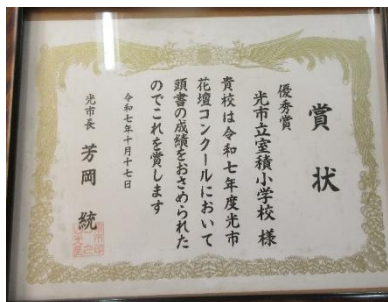 賞状
優秀賞
光市立室積小学校 様
貴校は令和七年度光市
花壇コンクールにおいて
頭書の成績をおさめられた
のでこれを賞します
令和七年十月十七日
光市長 芳岡 統